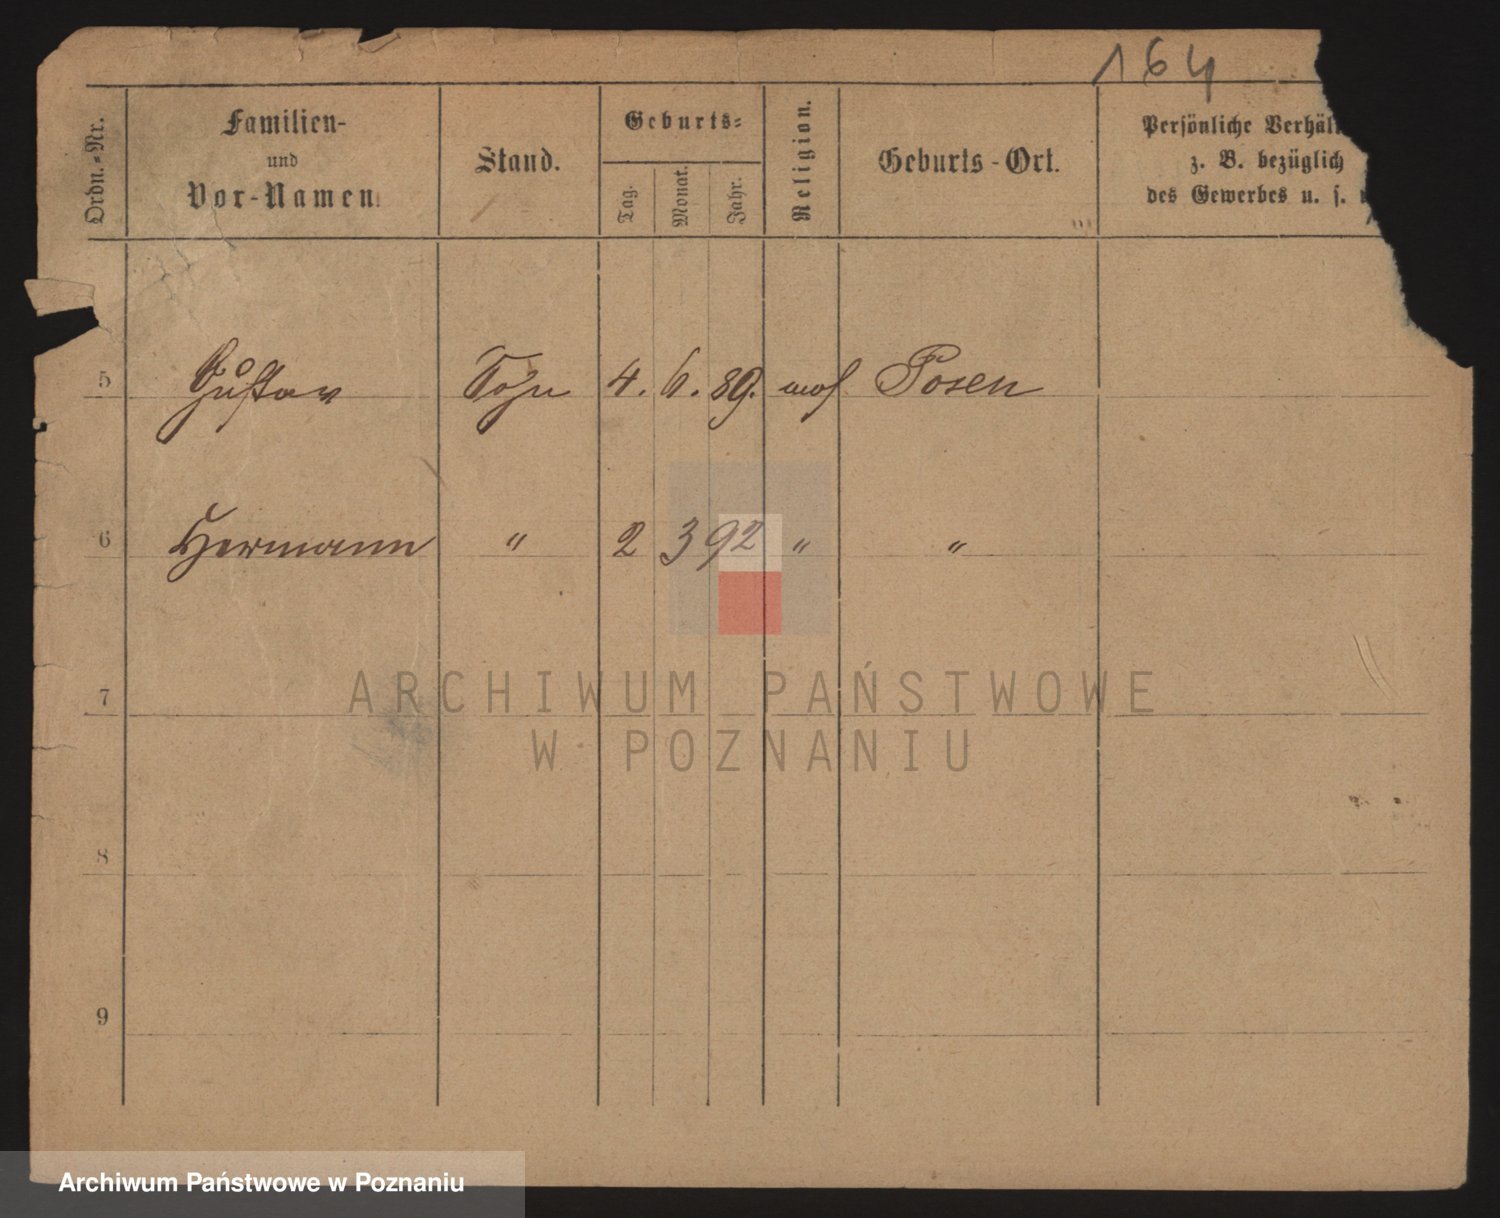 164
Ordn.-Nr.
Familien-
und
Vor-Namen.
Stand.
Geburts-
Tag.
Monat.
Jahr.
Religion.
Geburts-Ort.
Persönliche Verhäl
z. B. bezüglich
des Gewerbes u. s.
5 Gustav Sohn 4. 6. 89. mos Posen
6 Hermann " 2 3 92 " "
7
ARCHIWUM PAŃSTWOWE
W POZNANIU
8
9
Archiwum Państwowe w Poznaniu